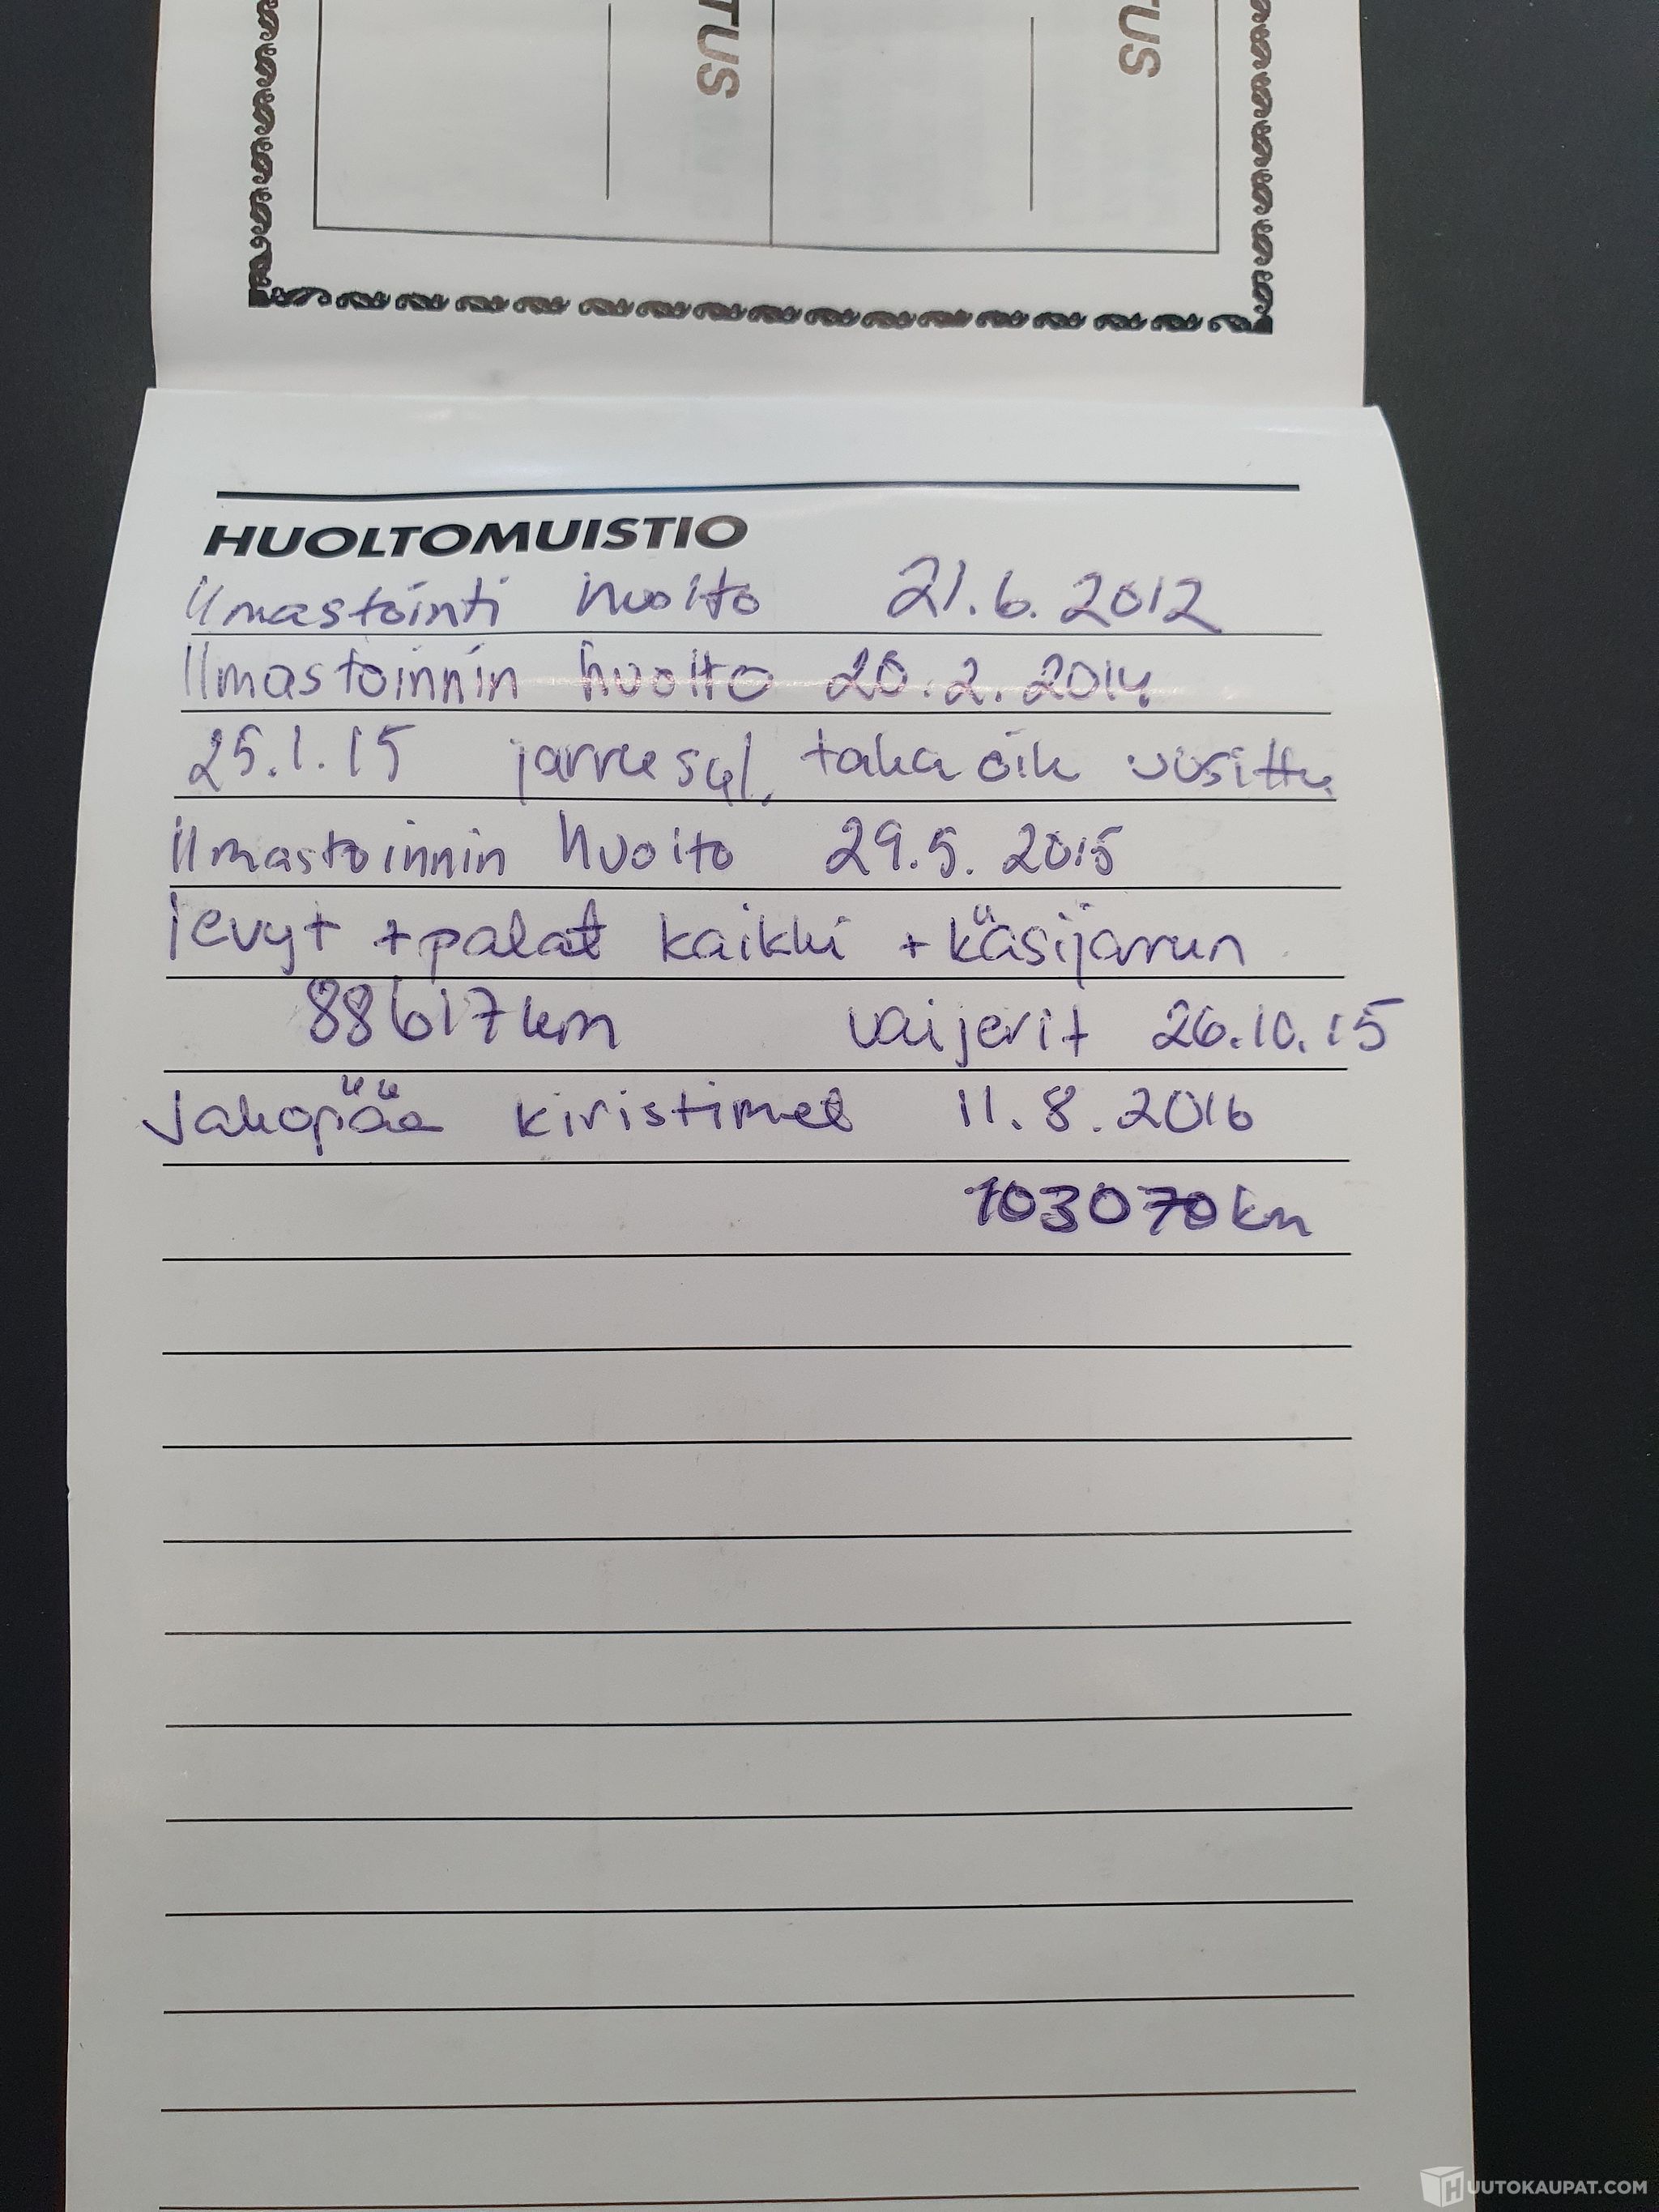 TUS
TUS
HUOLTOMUISTIO
Ilmastointi huolto 21.6.2012
Ilmastoinnin huolto 20.2.2014
25.1.15 jarrusyl. taka oik uusittu
Ilmastoinnin huolto 29.5.2015
levyt + palat kaikki + käsijarrun
88617km vaijerit 26.10.15
Jakopää kiristimet 11.8.2016
103070km
HUUTOKAUPAT.COM